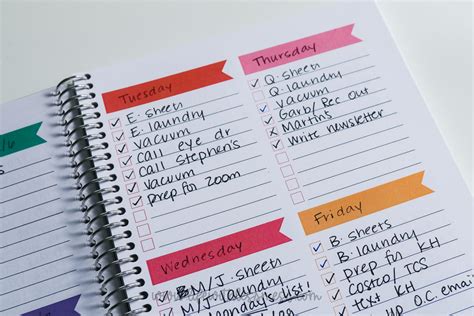 Tuesday
E. sheets
E. laundry
vacuum
call eye dr
call Stephen's
vacuum
prep for zoom
Wednesday
BM/J. sheets
M/J. laundry
list!
Thursday
Q. sheets
Q. laundry
vacuum
Garb/Rec out
Martins
write newsletter
Friday
B. sheets
B. laundry
prep for KH
Costco/TCS
text KH
up O.C. email